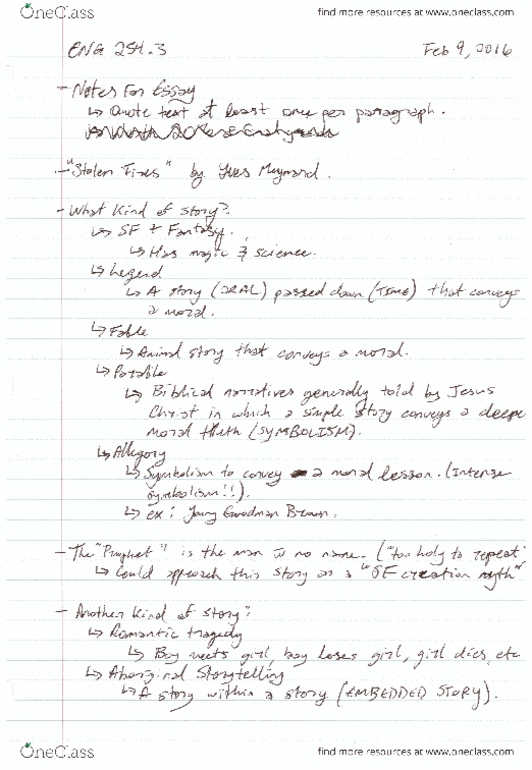 OneClass
find more resources at www.oneclass.com
ENG 254.3
Feb 9, 2016
- Notes For Essay
↳ Quote text at least once per paragraph.
- "Stolen Fires" by Yves Meynard.
- What Kind of story?
↳ SF + Fantasy.
↳ Has magic & science.
↳ Legend
↳ A story (ORAL) passed down (TIME) that conveys
a moral.
↳ Fable
↳ Animal story that conveys a moral.
↳ Parable
↳ Biblical narratives generally told by Jesus
Christ in which a simple story conveys a deepe
moral truth (SYMBOLISM).
↳ Allegory
↳ Symbolism to convey a moral lesson. (Intense
symbolism!!).
↳ ex: Young Goodman Brown.
- The "Prophet" is the man w no name. ("too holy to repeat"
↳ Could approach this story as a "SF creation myth"
- Another Kind of story?
↳ Romantic tragedy
↳ Boy meets girl, boy loses girl, girl dies, etc
↳ Aboriginal Storytelling
↳ A story within a story (EMBEDDED STORY).
OneClass
find more resources at www.oneclass.com